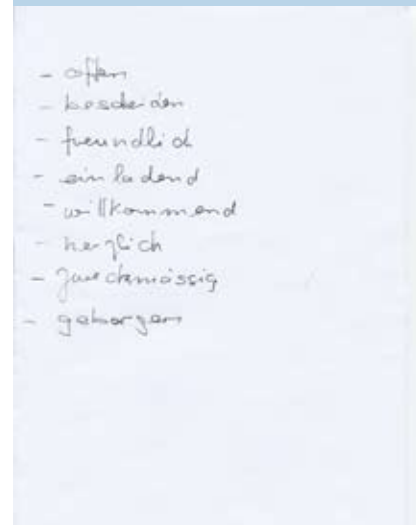 - offen
- bescheiden
- freundlich
- einladend
- willkommend
- herzlich
- zweckmässig
- geborgen